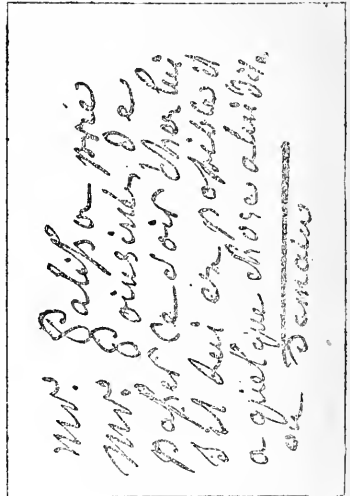 Mr. Palissot prie
Mr. Poinsinet de
passer ce soir chez lui
s'il lui est possible il
a quelque chose a lui dire
ou Demain